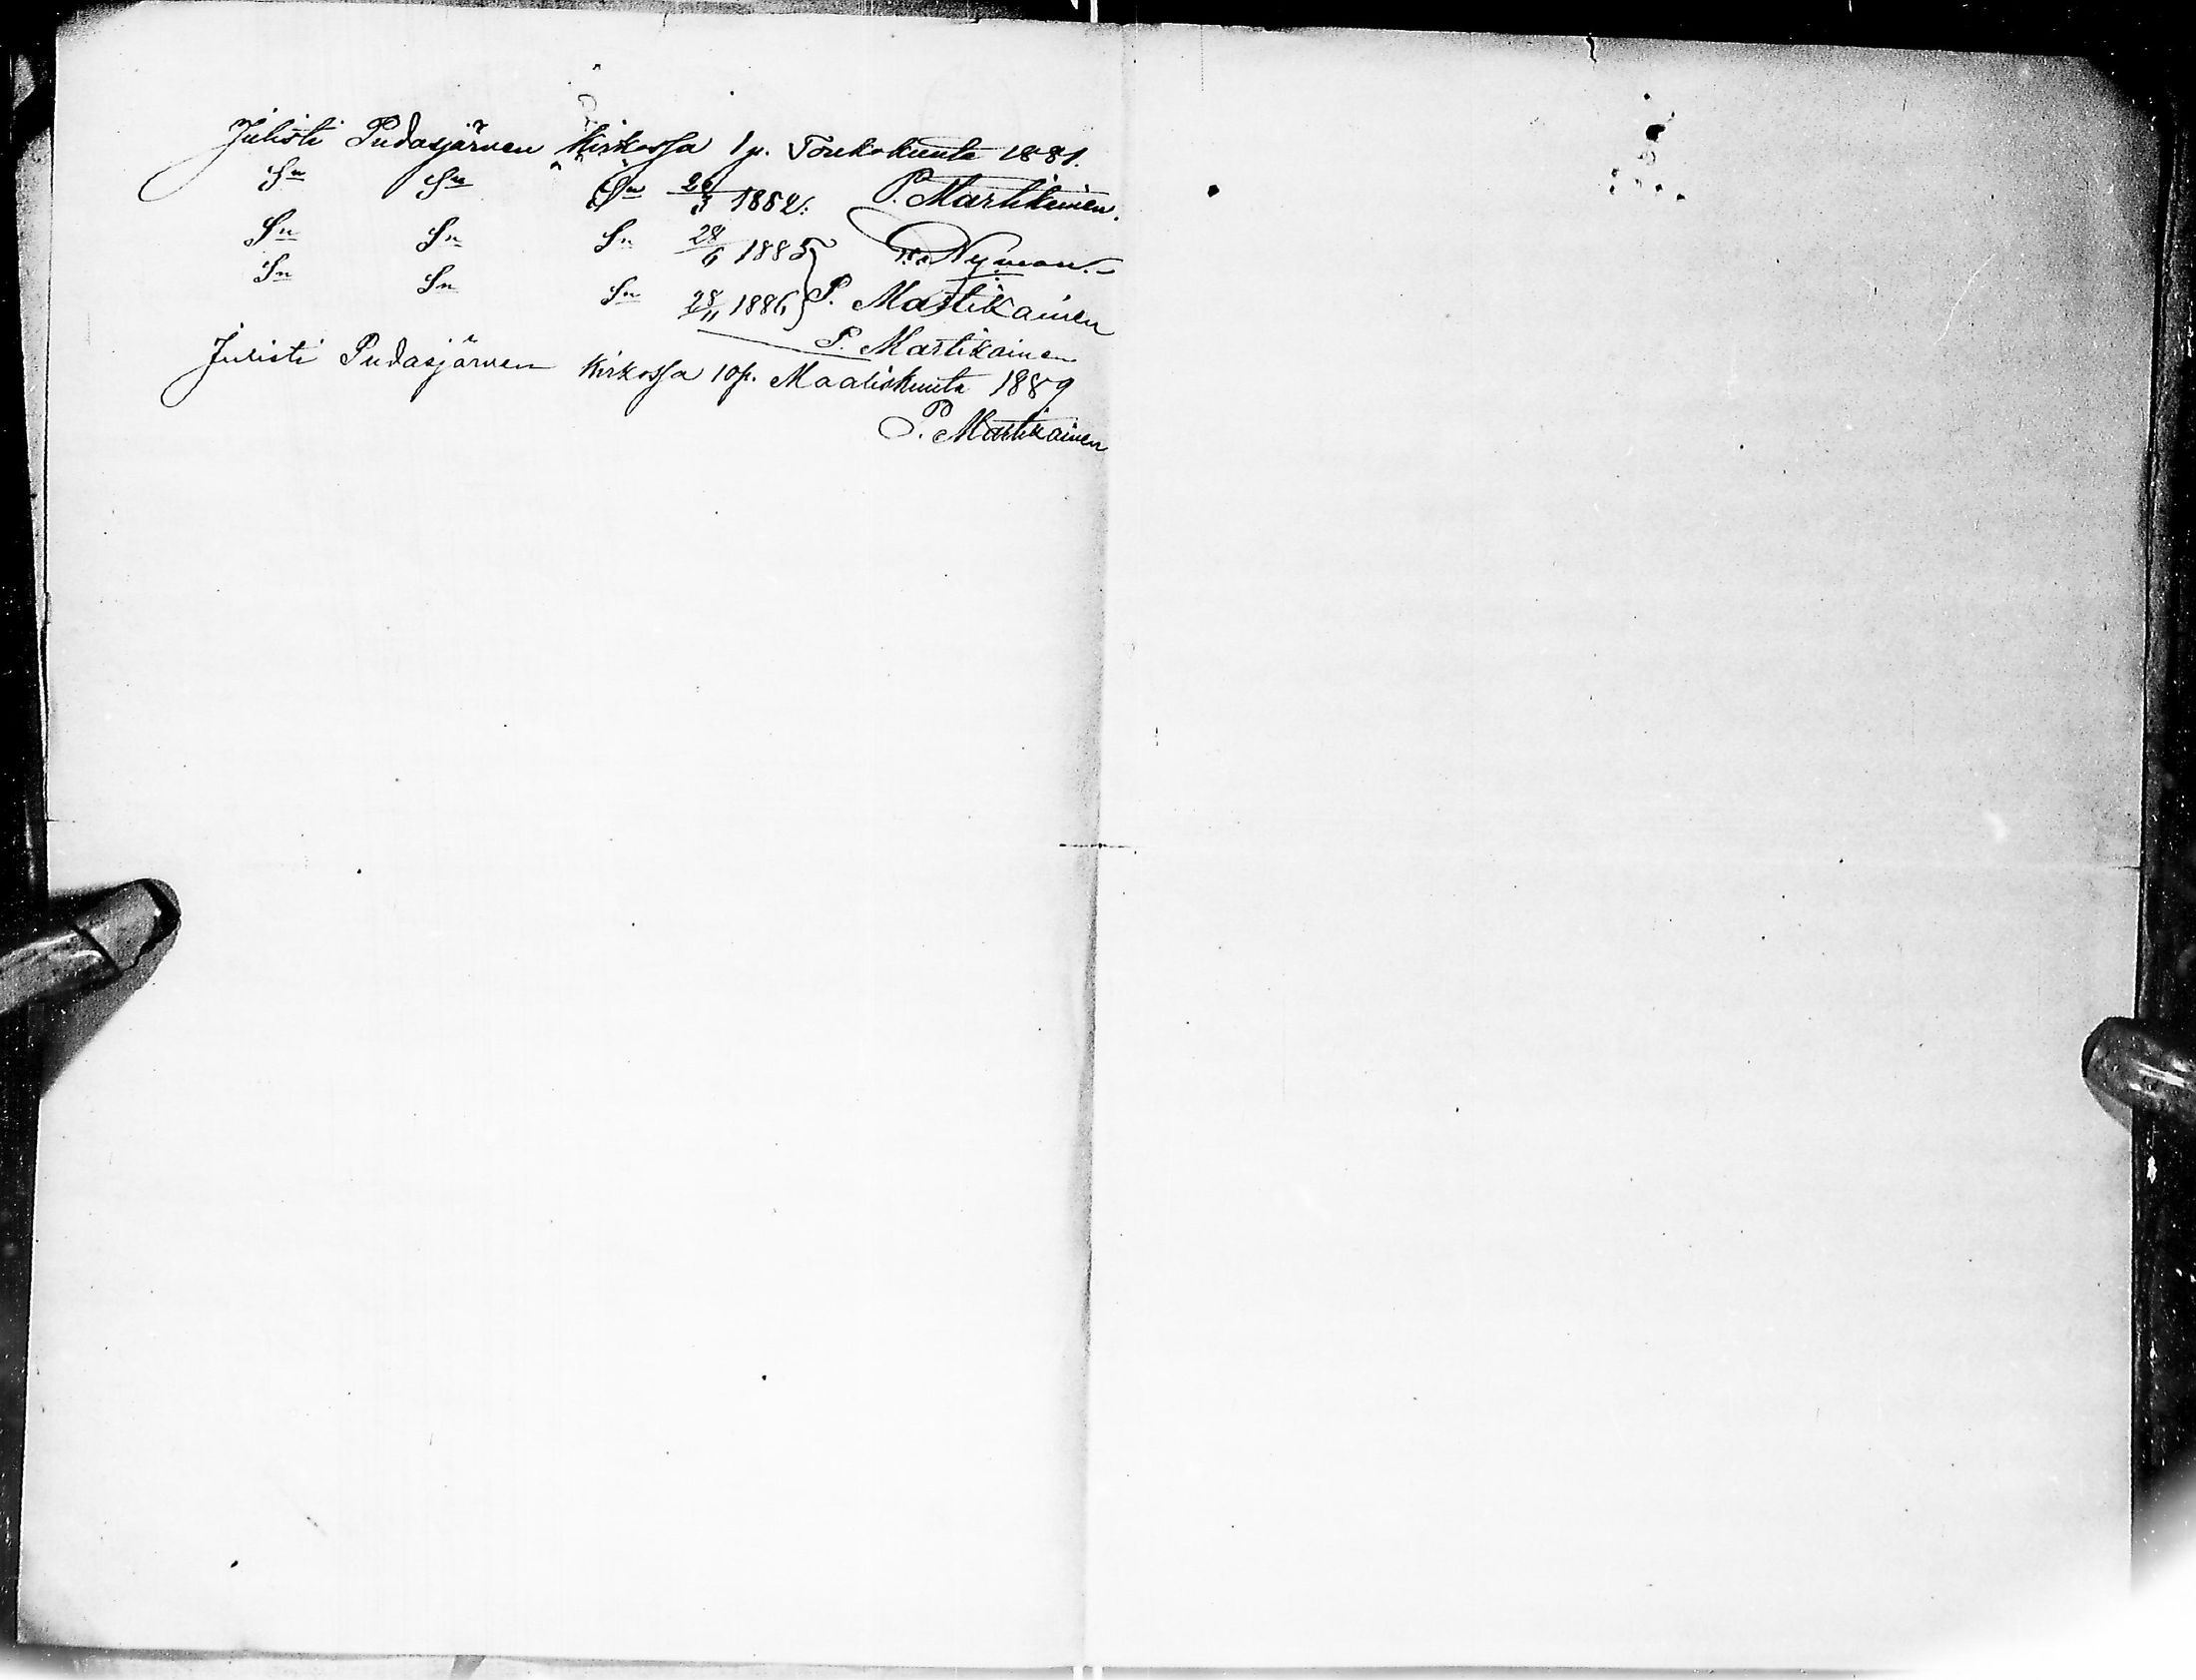 Julisti Pudasjärven Kirkossa 1 p. Toukokuuta 1881.
Sn Sn Sn 20/3 1882. P. Martikainen.
Sn Sn Sn 28/6 1885 Nyman.
Sn Sn Sn 28/11 1886 P. Martikainen
P. Martikainen
Julisti Pudasjärven Kirkossa 10 p. Maaliskuuta 1889
P. Martikainen